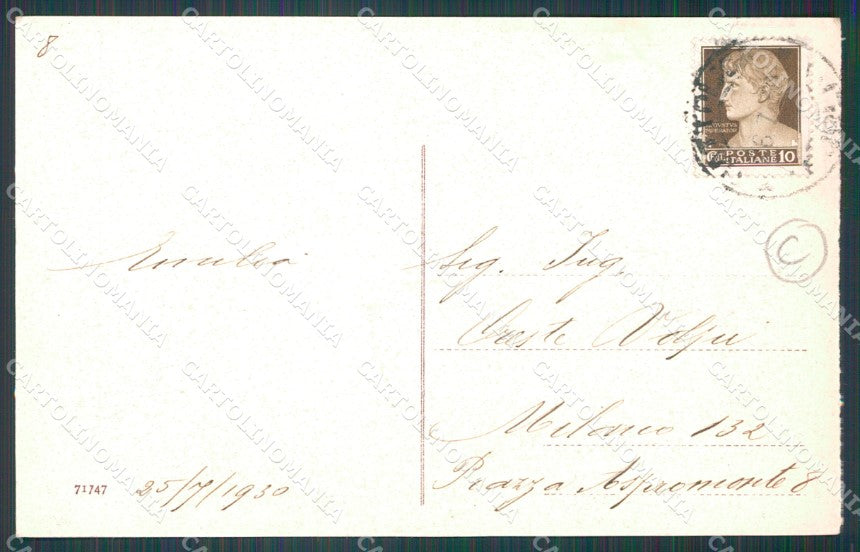 8
AVGVSTVS
IMPERATOR
POSTE
ITALIANE 10
C
Emilia
Sig. Ing.
Oreste Volpi
Milano 132
Piazza Aspromonte 8
71747 25/7/1930
CARTOLINOMANIA